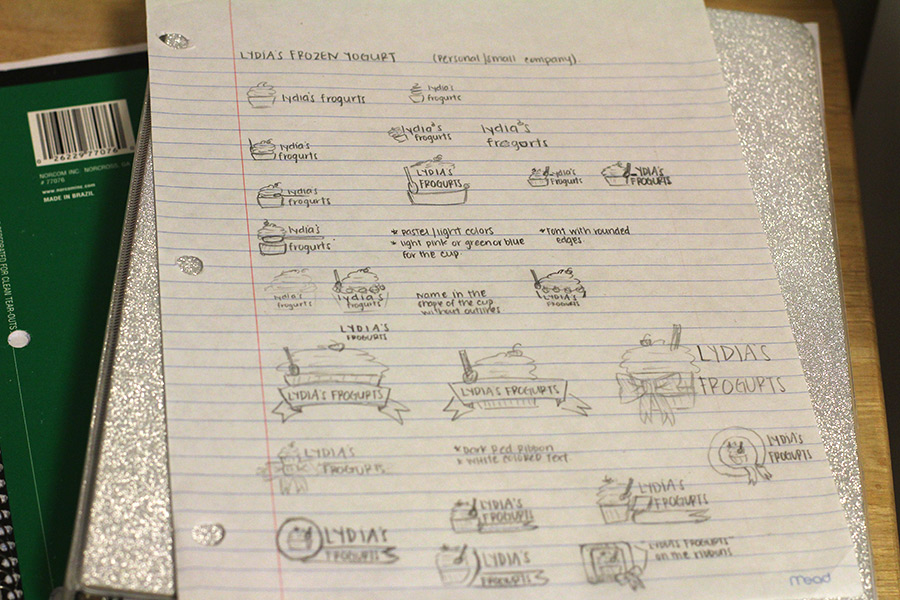 LYDIA'S FROZEN YOGURT (Personal/small company)
lydia's frogurts
lydia's
frogurts
lydia's
frogurts
lydia's
frogurts
lydia's
frogurts
LYDIA'S
FROGURTS
lydia's
frogurts
LYDIA'S
FROGURTS
lydia's
frogurts
lydia's
frogurts
* Pastel/light colors
* light pink or green or blue
for the cup.
* Font with rounded
edges.
lydia's
frogurts
lydia's
frogurts
Name in the
shape of the cup
without outlines
LYDIA'S
FROGURTS
LYDIA'S
FROGURTS
LYDIA'S FROGURTS
LYDIA'S FROGURTS
LYDIA'S
FROGURTS
LYDIA'S
FROGURTS
* Dark Red Ribbon
* WHITE COLORED TEXT
LYDIA'S
FROGURTS
LYDIA'S
FROGURTS
LYDIA'S
FROGURTS
LYDIA'S
FROGURTS
LYDIA'S
FROGURTS
"LYDIA'S FROGURTS"
on the ribbons
mead
0 26229 77076
NORCOM INC. NORCROSS, GA
# 77076
www.norcominc.com
MADE IN BRAZIL
FOR CLEAN TEAR-OUTS